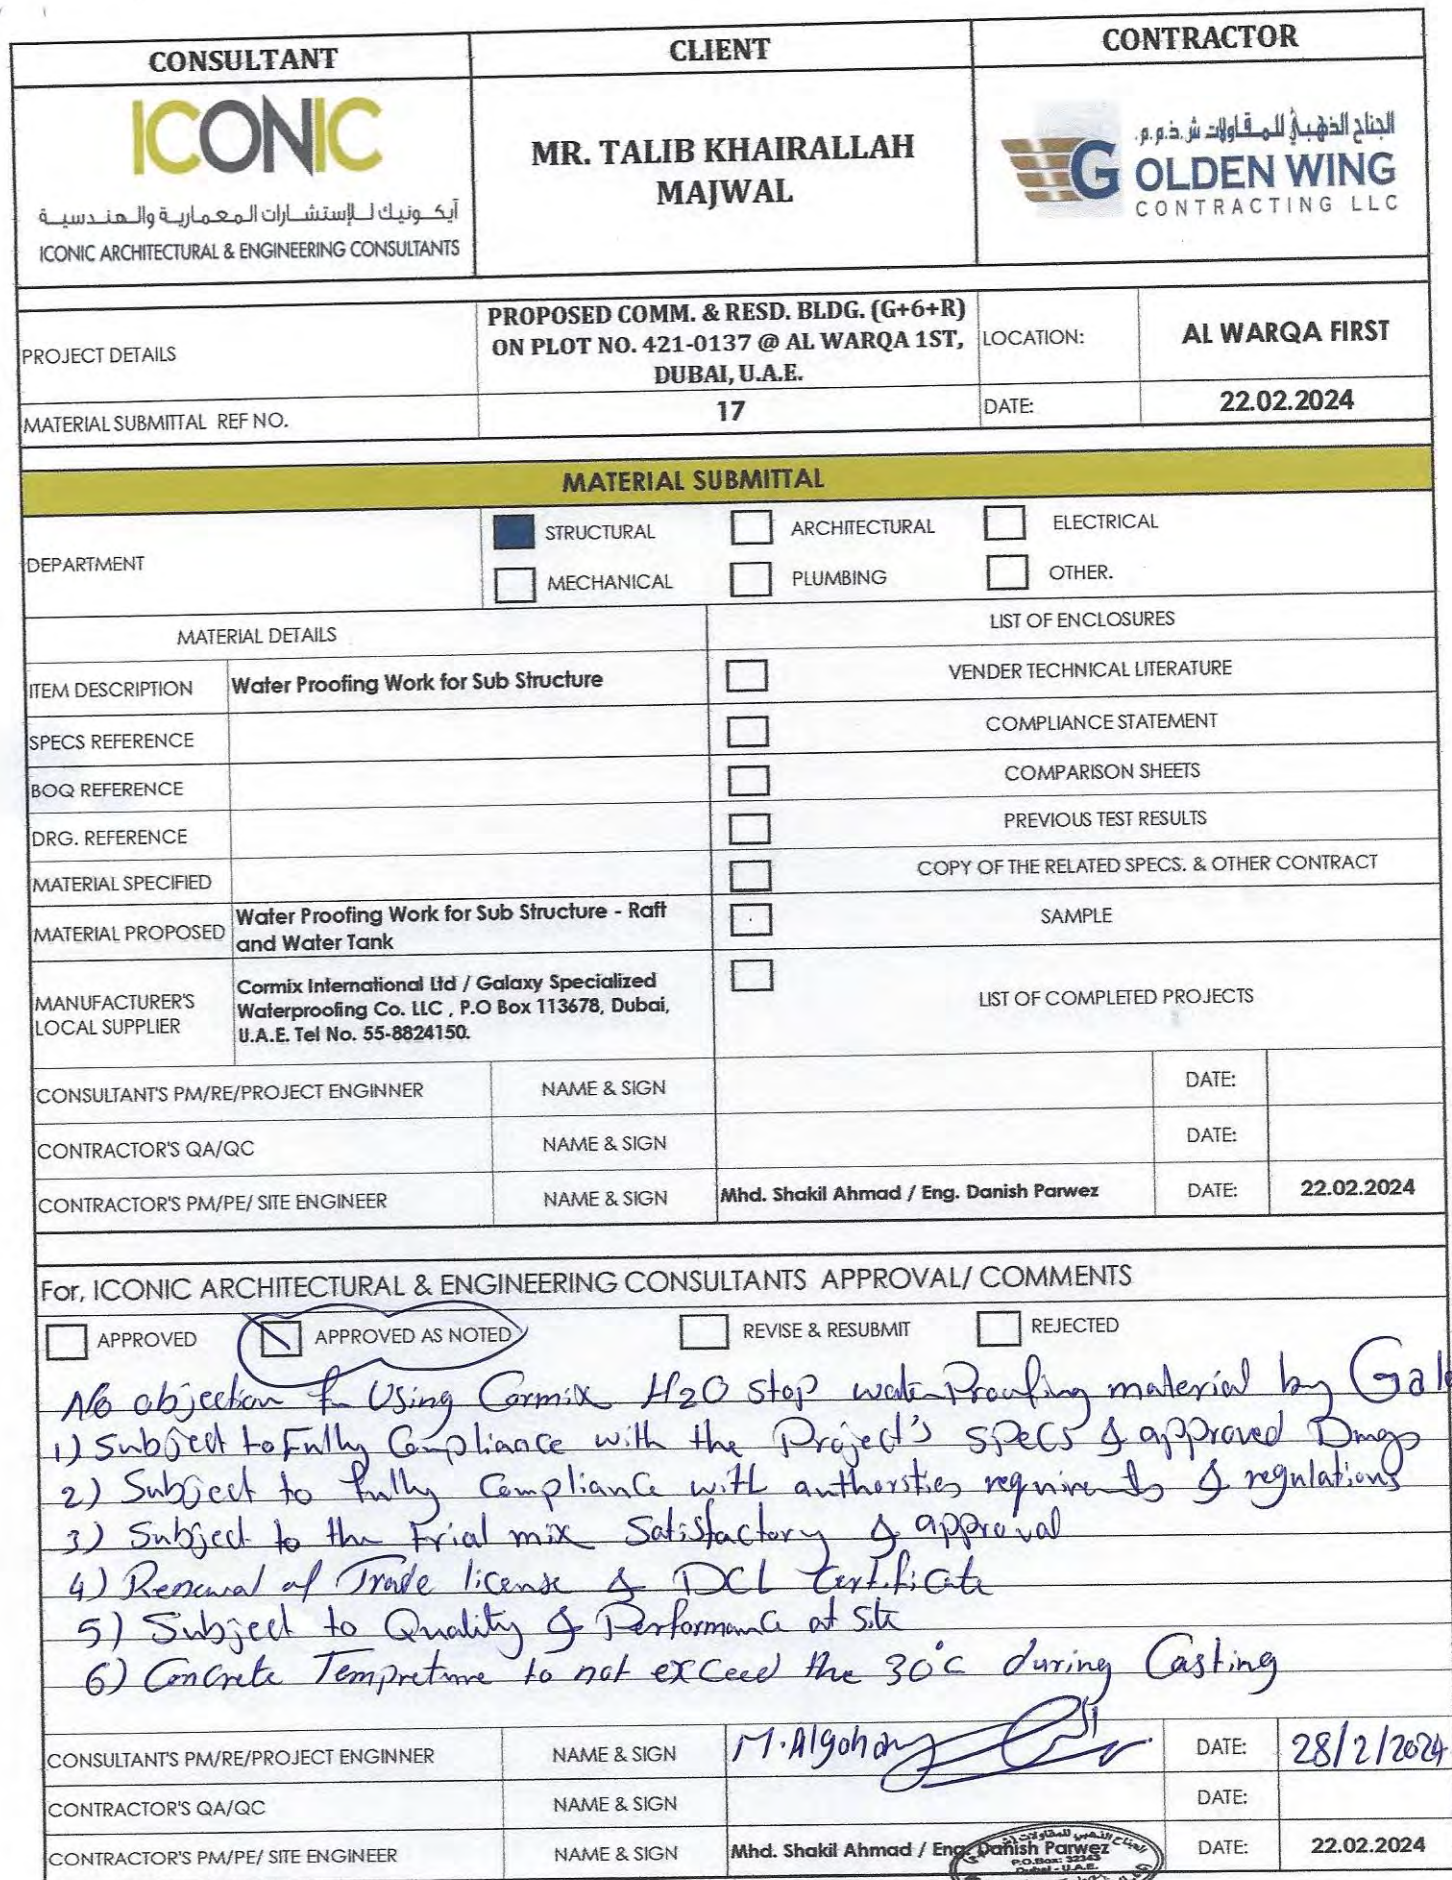 CONSULTANT
CLIENT
CONTRACTOR
ICONIC
آيكونيك للإستشارات المعمارية والهندسية
ICONIC ARCHITECTURAL & ENGINEERING CONSULTANTS
MR. TALIB KHAIRALLAH
MAJWAL
الجناح الذهبي للمقاولات ش.ذ.م.م.
GOLDEN WING
CONTRACTING LLC
PROJECT DETAILS
PROPOSED COMM. & RESD. BLDG. (G+6+R)
ON PLOT NO. 421-0137 @ AL WARQA 1ST,
DUBAI, U.A.E.
LOCATION:
AL WARQA FIRST
MATERIAL SUBMITTAL REF NO.
17
DATE:
22.02.2024
MATERIAL SUBMITTAL
DEPARTMENT
STRUCTURAL
ARCHITECTURAL
ELECTRICAL
MECHANICAL
PLUMBING
OTHER.
MATERIAL DETAILS
LIST OF ENCLOSURES
ITEM DESCRIPTION
Water Proofing Work for Sub Structure
VENDER TECHNICAL LITERATURE
SPECS REFERENCE
COMPLIANCE STATEMENT
BOQ REFERENCE
COMPARISON SHEETS
DRG. REFERENCE
PREVIOUS TEST RESULTS
MATERIAL SPECIFIED
COPY OF THE RELATED SPECS. & OTHER CONTRACT
MATERIAL PROPOSED
Water Proofing Work for Sub Structure - Raft
and Water Tank
SAMPLE
MANUFACTURER'S
LOCAL SUPPLIER
Cormix International Ltd / Galaxy Specialized
Waterproofing Co. LLC , P.O Box 113678, Dubai,
U.A.E. Tel No. 55-8824150.
LIST OF COMPLETED PROJECTS
CONSULTANT'S PM/RE/PROJECT ENGINNER
NAME & SIGN
DATE:
CONTRACTOR'S QA/QC
NAME & SIGN
DATE:
CONTRACTOR'S PM/PE/ SITE ENGINEER
NAME & SIGN
Mhd. Shakil Ahmad / Eng. Danish Parwez
DATE:
22.02.2024
For, ICONIC ARCHITECTURAL & ENGINEERING CONSULTANTS APPROVAL/ COMMENTS
APPROVED
APPROVED AS NOTED
REVISE & RESUBMIT
REJECTED
No objection for Using Cormix H2O stop water Proofing material by Gal
1) Subject to Fully Compliance with the Project's specs & approved Dwgs
2) Subject to fully Compliance with authorities requirements & regulations
3) Subject to the trial mix Satisfactory & approval
4) Renewal of Trade license & DCL Certificate
5) Subject to Quality & Performance at site
6) Concrete Tempreture to not exceed the 30°c during Casting
CONSULTANT'S PM/RE/PROJECT ENGINNER
NAME & SIGN
M. Algohary
DATE:
28/2/2024
CONTRACTOR'S QA/QC
NAME & SIGN
DATE:
CONTRACTOR'S PM/PE/ SITE ENGINEER
NAME & SIGN
Mhd. Shakil Ahmad / Eng. Danish Parwez
P.O.Box: 32343
Dubai - U.A.E.
DATE:
22.02.2024